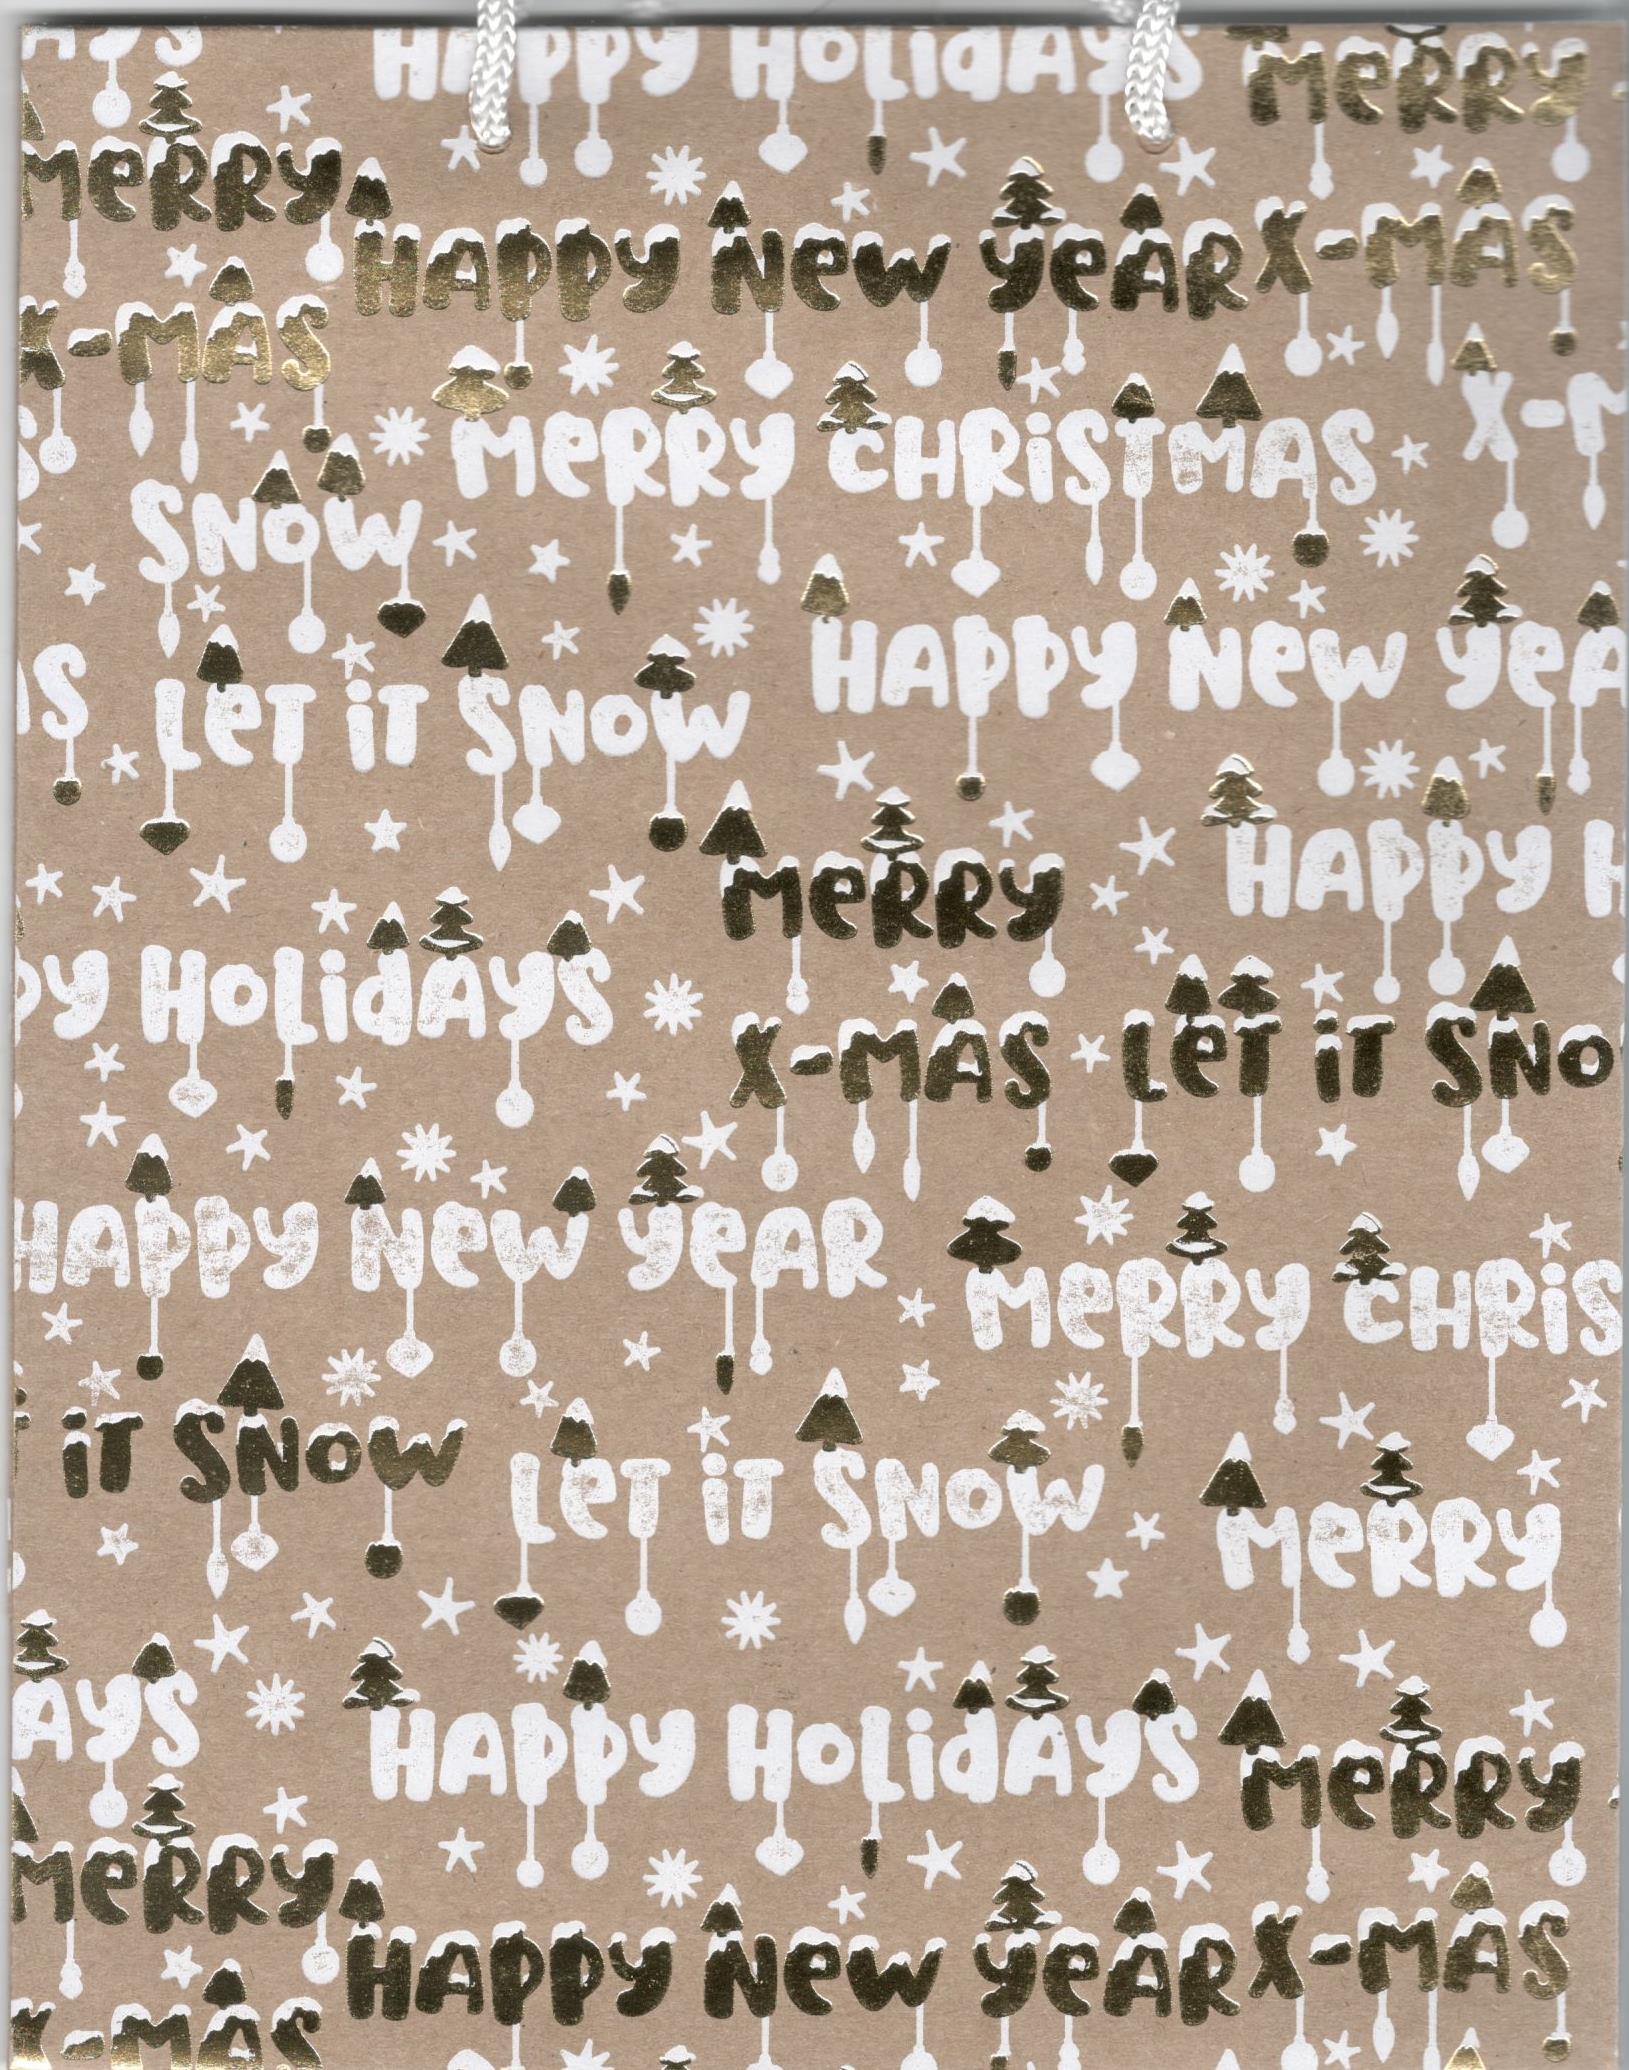 AYS HAPPY HOLIDAYS MERRY
MERRY
HAPPY NEW YEAR X-MAS
X-MAS
MERRY CHRISTMAS X-M
SNOW
HAPPY NEW YEA
AS LET IT SNOW
MERRY HAPPY H
PY HOLIDAYS
X-MAS LET IT SNO
HAPPY NEW YEAR
MERRY CHRIS
IT SNOW
LET IT SNOW MERRY
AYS HAPPY HOLIDAYS
MERRY
MERRY
HAPPY NEW YEAR X-MAS
X-MAS